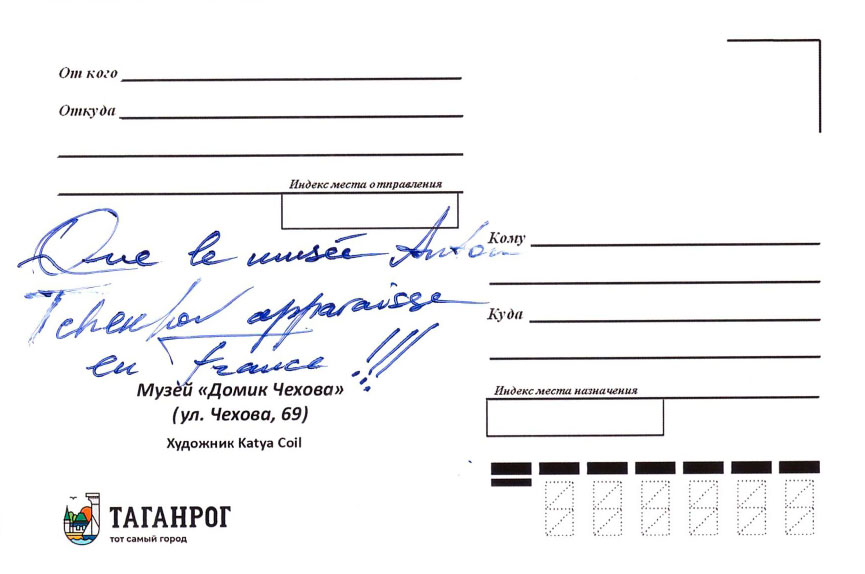 От кого
Откуда
Индекс места отправления
Que le musée Anton
Tchekhov apparaisse
en france !!!
Кому
Куда
Индекс места назначения
Музей «Домик Чехова»
(ул. Чехова, 69)
Художник Katya Coil
ТАГАНРОГ
тот самый город